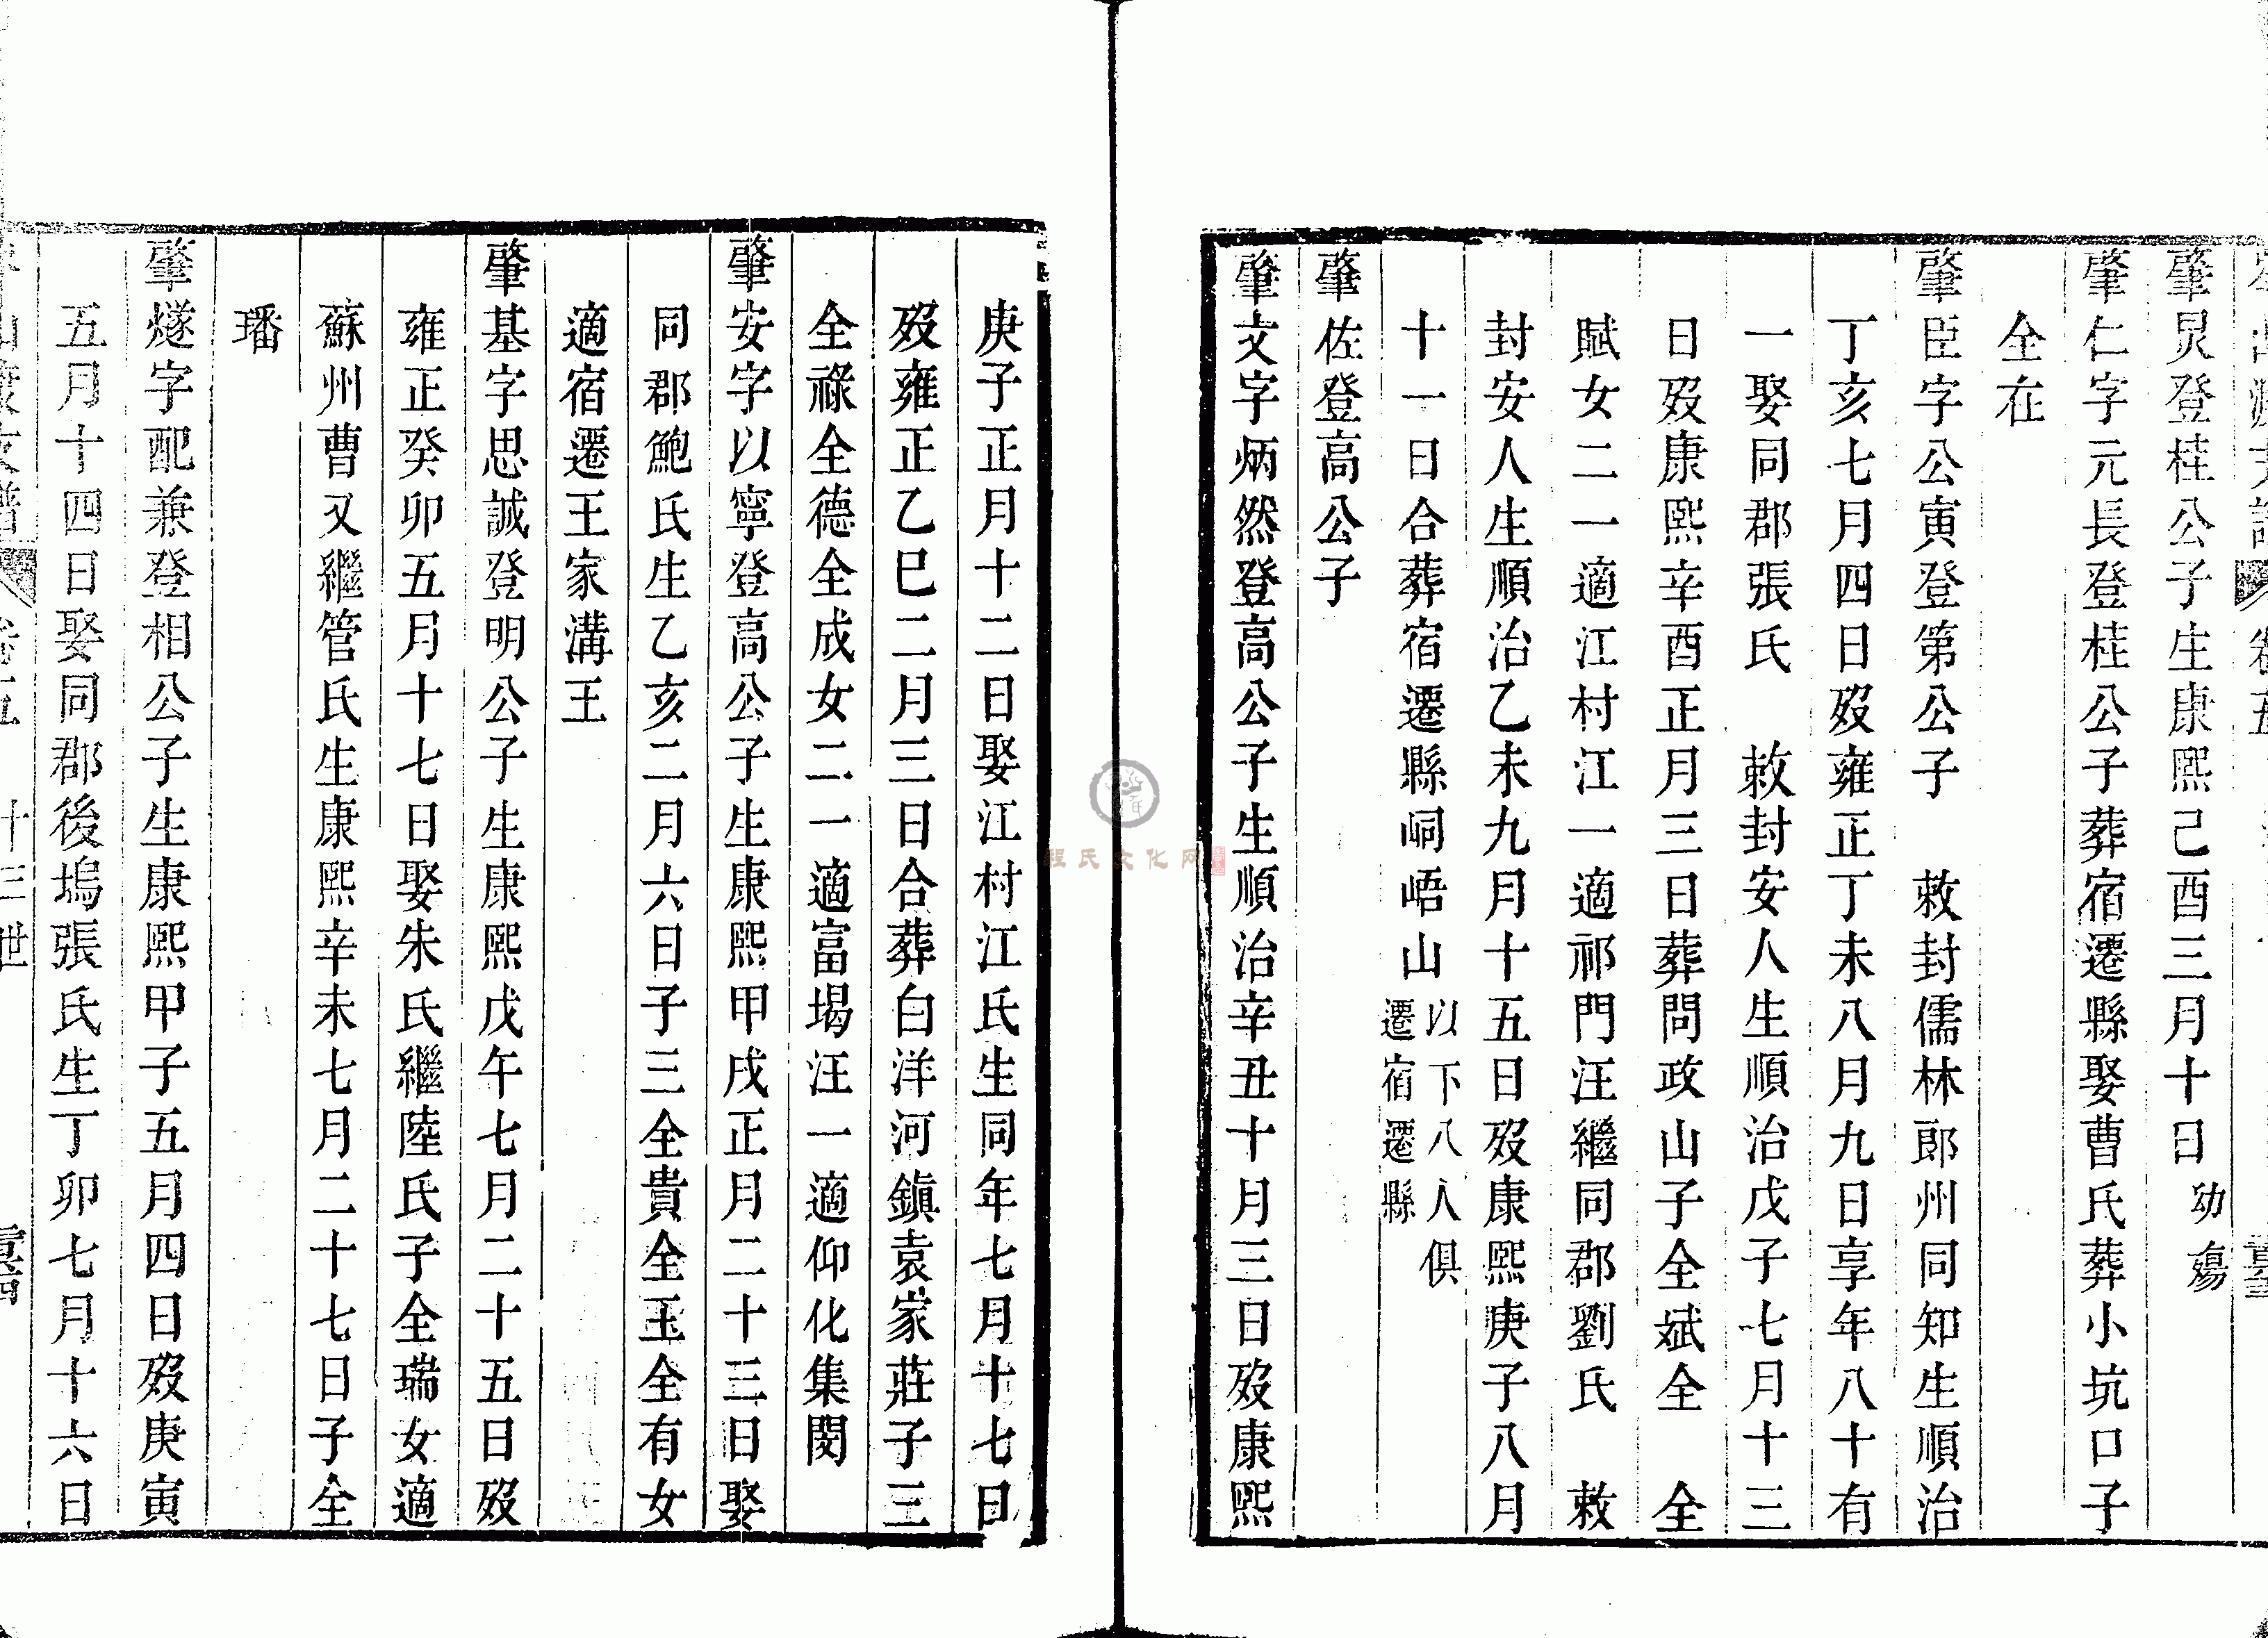 肇炅登桂公子生康熙己酉三月十日幼殤
肇仁字元長登桂公子葬宿遷縣娶曹氏葬小坑口子
全在
肇臣字公寅登第公子 敕封儒林郎州同知生順治
丁亥七月四日歿雍正丁未八月九日享年八十有
一娶同郡張氏 敕封安人生順治戊子七月十三
日歿康熙辛酉正月三日葬問政山子全斌全 全
賦女二一適江村江一適祁門汪繼同郡劉氏 敕
封安人生順治乙未九月十五日歿康熙庚子八月
十一日合葬宿遷縣峒峿山
以下八人俱
遷宿遷縣
肇佐登高公子
肇文字炳然登高公子生順治辛丑十月三日歿康熙
庚子正月十二日娶江村江氏生同年七月十七日
歿雍正乙巳二月三日合葬白洋河鎮袁家莊子三
全祿全德全成女二一適富堨汪一適仰化集閔
肇安字以寧登高公子生康熙甲戌正月二十三日娶
同郡鮑氏生乙亥二月六日子三全貴全玉全有女
適宿遷王家溝王
肇基字思誠登明公子生康熙戊午七月二十五日歿
雍正癸卯五月十七日娶朱氏繼陸氏子全瑞女適
蘇州曹又繼管氏生康熙辛未七月二十七日子全
璠
肇燧字配兼登相公子生康熙甲子五月四日歿庚寅
五月十四日娶同郡後塢張氏生丁卯七月十六日
卷五 十三世